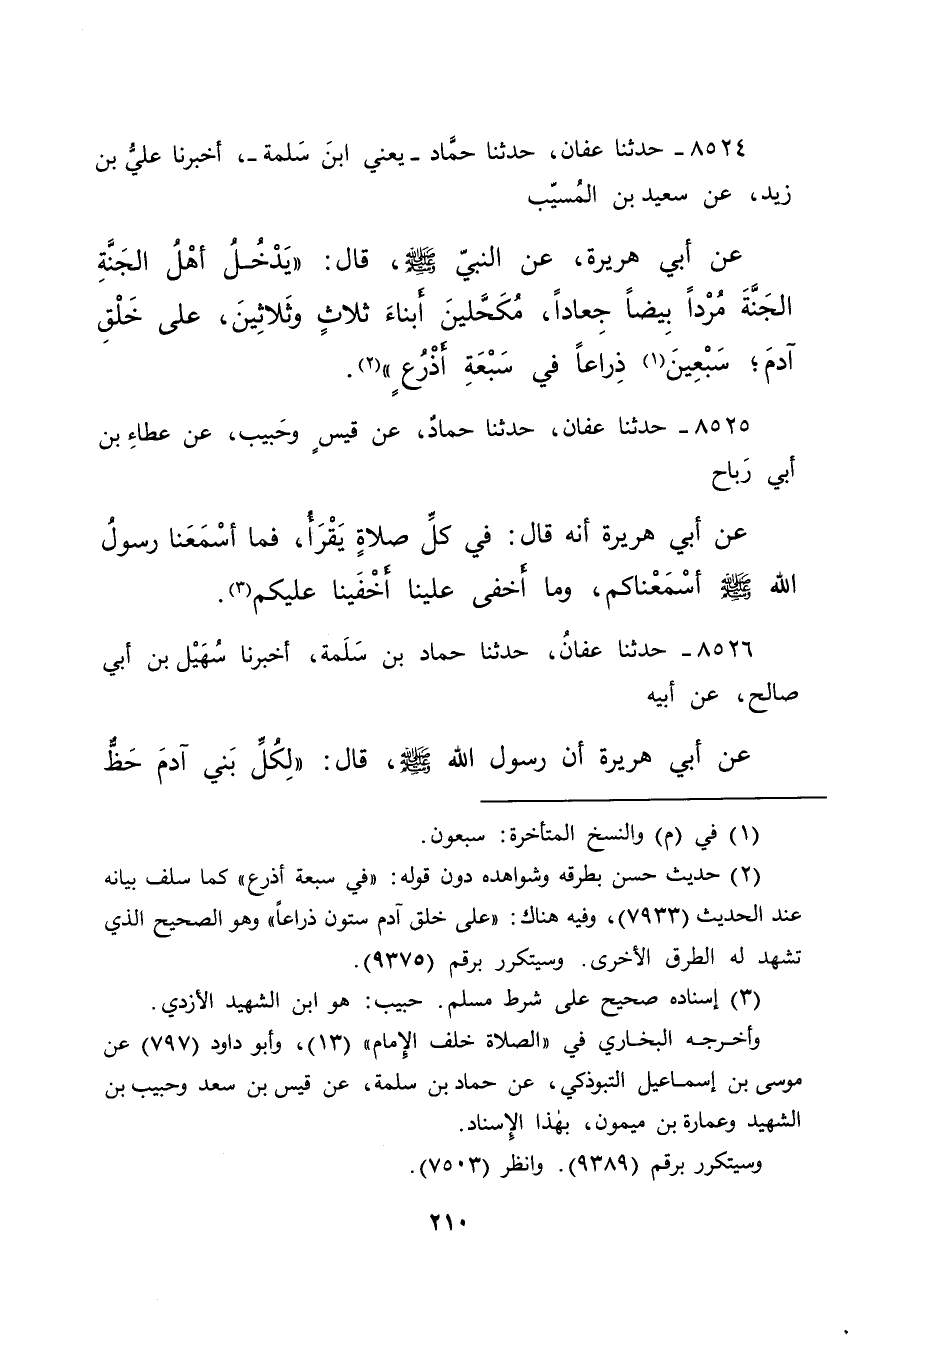 ٨٥٢٤ ـ حدثنا عفان، حدثنا حمَّاد ـ يعني ابنَ سَلمة ـ، أخبرنا عليُّ بن
زيد، عن سعيد بن المُسيّب
عن أبي هريرة، عن النبيّ ﷺ، قال: «يَدْخُـلُ أهْلُ الجَنَّةِ
الجَنَّةَ مُرْداً بِيضاً جِعاداً، مُكَحَّلينَ أَبناءَ ثلاثٍ وثَلاثِينَ، على خَلْقِ
آدمَ؛ سَبْعِينَ(١) ذِراعاً في سَبْعَةِ أَذْرُعٍ»(٢).
٨٥٢٥ ـ حدثنا عفان، حدثنا حمادٌ، عن قيسٍ وحَبيب، عن عطاءِ بن
أبي رَباح
عن أبي هريرة أنه قال: في كلِّ صلاةٍ يَقْرَأُ، فما أسْمَعَنا رسولُ
الله ﷺ أسْمَعْناكم، وما أَخفى علينا أَخْفَينا عليكم(٣).
٨٥٢٦ ـ حدثنا عفانُ، حدثنا حماد بن سَلَمة، أخبرنا سُهَيْل بن أبي
صالح، عن أبيه
عن أبي هريرة أن رسول الله ﷺ، قال: «لِكُلِّ بَني آدمَ حَظٌّ
(١) في (م) والنسخ المتأخرة: سبعون.
(٢) حديث حسن بطرقه وشواهده دون قوله: «في سبعة أذرع» كما سلف بيانه
عند الحديث (٧٩٣٣)، وفيه هناك: «على خلق آدم ستون ذراعاً» وهو الصحيح الذي
تشهد له الطرق الأخرى. وسيتكرر برقم (٩٣٧٥).
(٣) إسناده صحيح على شرط مسلم. حبيب: هو ابن الشهيد الأزدي.
وأخـرجـه البخـاري في «الصلاة خلف الإمام» (١٣)، وأبو داود (٧٩٧) عن
موسى بن إسمـاعيل التبوذكي، عن حماد بن سلمة، عن قيس بن سعد وحبيب بن
الشهيد وعمارة بن ميمون، بهٰذا الإسناد.
وسيتكرر برقم (٩٣٨٩). وانظر (٧٥٠٣).
٢١٠